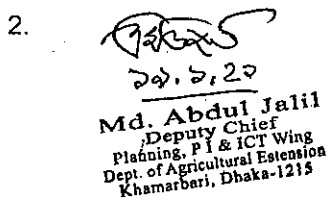 2.
Md. Abdul Jalil
Deputy Chief
Planning, P I & ICT Wing
Dept. of Agricultural Estension
Khamarbari, Dhaka-1215